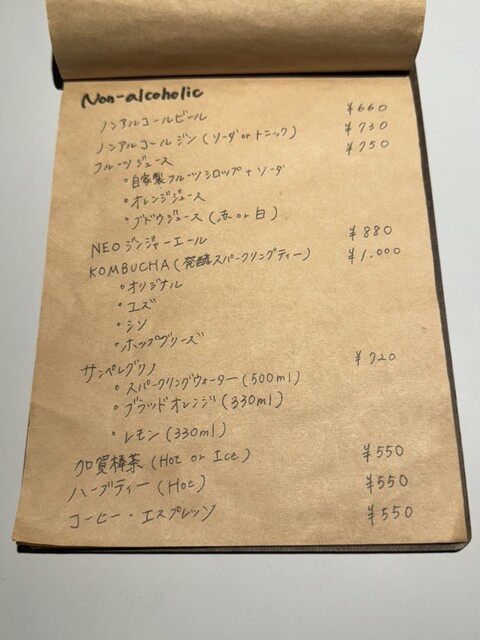 Non-alcoholic
ノンアルコールビール ¥660
ノンアルコールジン (ソーダ or トニック) ¥730
フルーツジュース ¥750
・自家製フルーツシロップ + ソーダ
・オレンジジュース
・ブドウジュース (赤 or 白)
NEOジンジャーエール ¥880
KOMBUCHA (発酵スパークリングティー) ¥1.000
・オリジナル
・ユズ
・シソ
・ホップグリーズ
サンペレグリノ ¥720
・スパークリングウォーター (500ml)
・ブラッドオレンジ (330ml)
・レモン (330ml)
加賀棒茶 (Hot or Ice) ¥550
ハーブティー (Hot) ¥550
コーヒー・エスプレッソ ¥550